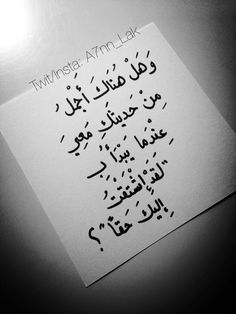 Twit/Insta: A7nn_Lak
وَهَلْ هُنَاكَ أَجْمَلُ
مِنْ حَدِيثِكِ مَعِي
عِنْدِمَا يَبْدَأُ بِ
"لَقَدْ إِشْتَقْتُ
إِلَيكَ حَقَاً"؟